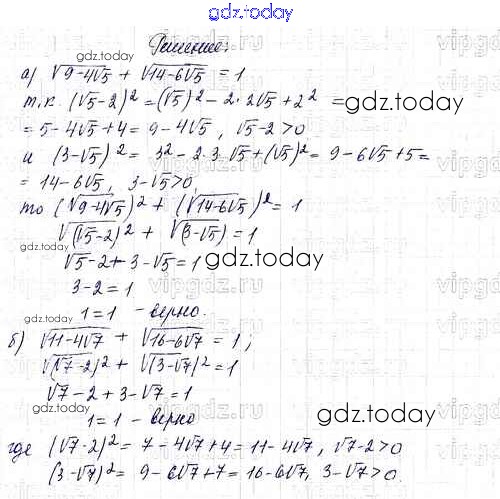 gdz.today
Решение:
gdz.today
а) √9-4√5 + √14-6√5 = 1
т.к. (√5-2)² = (√5)² - 2·2√5 + 2² =
gdz.today
= 5-4√5+4 = 9-4√5, √5-2>0
и (3-√5)² = 3² - 2·3·√5 + (√5)² = 9-6√5+5 =
= 14-6√5, 3-√5>0,
то (√9-4√5)² + (√14-6√5)² = 1
√(√5-2)² + √(3-√5) = 1
gdz.today
√5-2+3-√5 = 1
gdz.today
3-2 = 1
1=1 - верно.
gdz.today
б) √11-4√7 + √16-6√7 = 1;
√(√7-2)² + √(3-√7)² = 1
√7-2+3-√7 = 1
gdz.today
1=1 - верно
gdz.today
где (√7-2)² = 7-4√7+4 = 11-4√7, √7-2>0
(3-√7)² = 9-6√7+7 = 16-6√7, 3-√7>0.